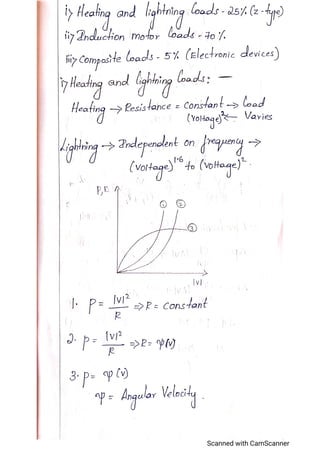 i) Heating and lightning loads - 25% (z-type)
ii) Induction motor loads - 70%.
iii) Composite loads - 5% (Electronic devices)
i) Heating and lightning loads : —
Heating → Resistance = Constant → load
(Voltage)² ← Varies
Lightning → Independent on frequency →
(voltage)^1.6 to (voltage)².
P,R
① ②
③
|V|
1. P = |V|²/R ⇒ R = constant
2. P = |V|²/R ⇒ R = φ(V)
3. P = φ(V)
φ = Angular Velocity.
Scanned with CamScanner